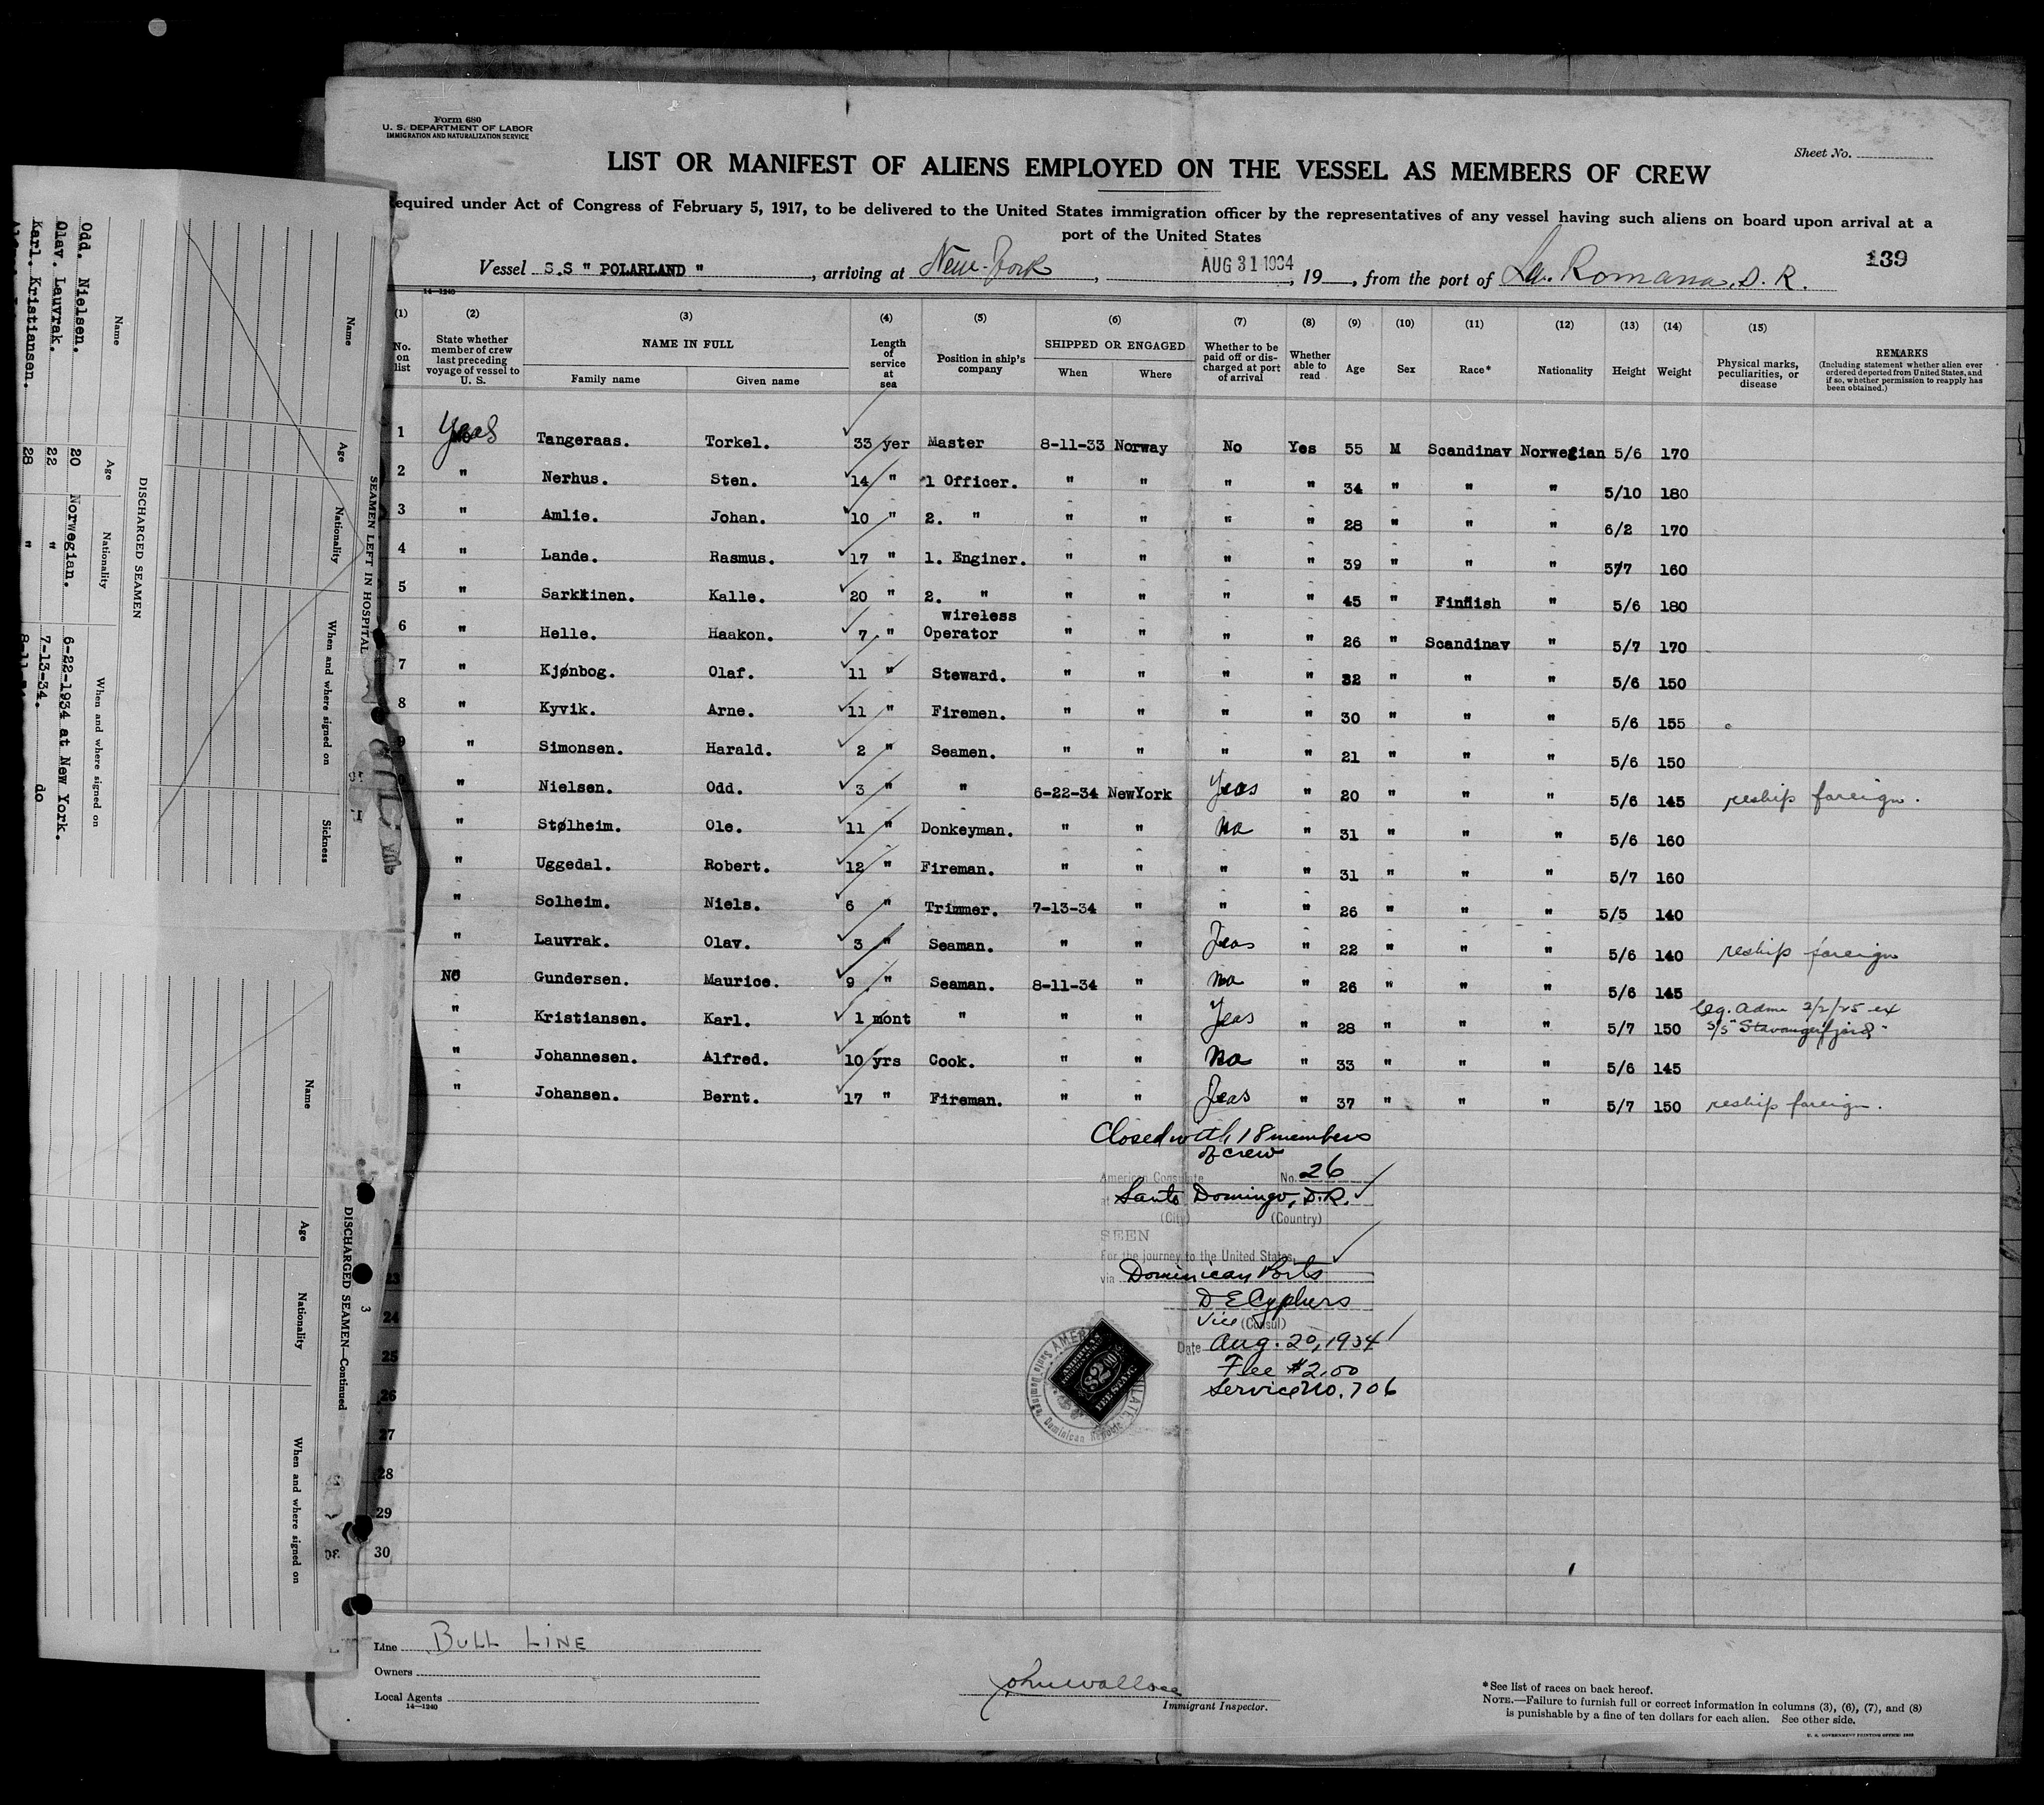 Form 680
U. S. DEPARTMENT OF LABOR
IMMIGRATION AND NATURALIZATION SERVICE
Sheet No.
LIST OR MANIFEST OF ALIENS EMPLOYED ON THE VESSEL AS MEMBERS OF CREW
equired under Act of Congress of February 5, 1917, to be delivered to the United States immigration officer by the representatives of any vessel having such aliens on board upon arrival at a
port of the United States
139
Vessel S.S " POLARLAND " , arriving at New-York , AUG 31 1934 , 19 , from the port of La. Romana, D. R.
14—1240
(1) (2) (3) (4) (5) (6) (7) (8) (9) (10) (11) (12) (13) (14) (15)
No. on list
State whether member of crew last preceding voyage of vessel to U. S.
NAME IN FULL
Family name Given name
Length of service at sea
Position in ship's company
SHIPPED OR ENGAGED
When Where
Whether to be paid off or discharged at port of arrival
Whether able to read
Age Sex Race* Nationality Height Weight
Physical marks, peculiarities, or disease
REMARKS
(Including statement whether alien ever ordered deported from United States, and if so, whether permission to reapply has been obtained.)
1 Yeas Tangeraas. Torkel. 33 yer Master 8-11-33 Norway No Yes 55 M Scandinav Norwegian 5/6 170
2 " Nerhus. Sten. 14 " 1 Officer. " " " " 34 " " " 5/10 180
3 " Amlie. Johan. 10 " 2. " " " " " 28 " " " 6/2 170
4 " Lande. Rasmus. 17 " 1. Enginer. " " " " 39 " " " 5/7 160
5 " Sarkkinen. Kalle. 20 " 2. " " " " " 45 " Finnish " 5/6 180
6 " Helle. Haakon. 7 " wireless Operator " " " " 26 " Scandinav " 5/7 170
7 " Kjønbog. Olaf. 11 " Steward. " " " " 32 " " " 5/6 150
8 " Kyvik. Arne. 11 " Firemen. " " " " 30 " " " 5/6 155
9 " Simonsen. Harald. 2 " Seamen. " " " " 21 " " " 5/6 150
0 " Nielsen. Odd. 3 " " 6-22-34 NewYork Yeas " 20 " " " 5/6 145 reship foreign.
" Stølheim. Ole. 11 " Donkeyman. " " no " 31 " " " 5/6 160
" Uggedal. Robert. 12 " Fireman. " " " " 31 " " " 5/7 160
" Solheim. Niels. 6 " Trimmer. 7-13-34 " " " 26 " " " 5/5 140
" Lauvrak. Olav. 3 " Seaman. " " Yeas " 22 " " " 5/6 140 reship foreign
NO Gundersen. Maurice. 9 " Seaman. 8-11-34 " no " 26 " " " 5/6 145
" Kristiansen. Karl. 1 mont " " " Yeas " 28 " " " 5/7 150 Leg. Adm. 2/2/25 ex S/S "Stavangerfjord"
" Johannesen. Alfred. 10 yrs Cook. " " no " 33 " " " 5/6 145
" Johansen. Bernt. 17 " Fireman. " " Yeas " 37 " " " 5/7 150 reship foreign.
Closed with 18 members
of crew
American Consulate No. 26
at Santo Domingo, D.R.
(City) (Country)
SEEN
For the journey to the United States
via Dominican Ports
D E Cyphers
Vice (Consul)
Date Aug. 20, 1934
Fee $2.00
Service No. 706
23
24
25
26
27
28
29
30
Line BULL LINE
Owners
Local Agents
14—1240
John Wallace
Immigrant Inspector.
*See list of races on back hereof.
NOTE.—Failure to furnish full or correct information in columns (3), (6), (7), and (8)
is punishable by a fine of ten dollars for each alien. See other side.
U. S. GOVERNMENT PRINTING OFFICE
SEAMEN LEFT IN HOSPITAL
Name Age Nationality When and where signed on Sickness
DISCHARGED SEAMEN
Name Age Nationality When and where signed on
Odd. Nielsen. 20 Norwegian. 6-22-1934 at New York.
Olav. Lauvrak. 22 " 7-13-34. do
Karl. Kristiansen. 28 "
DISCHARGED SEAMEN—Continued
Name Age Nationality When and where signed on